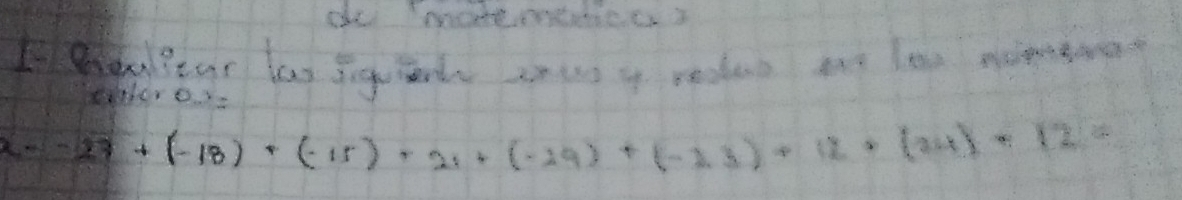 de matematicas
1- Realizar las siguiente sumas y restas en los numeros
enteros:
a- -27 + (-18) + (-15) + 21 + (-29) + (-33) + 12 + (24) + 12 =